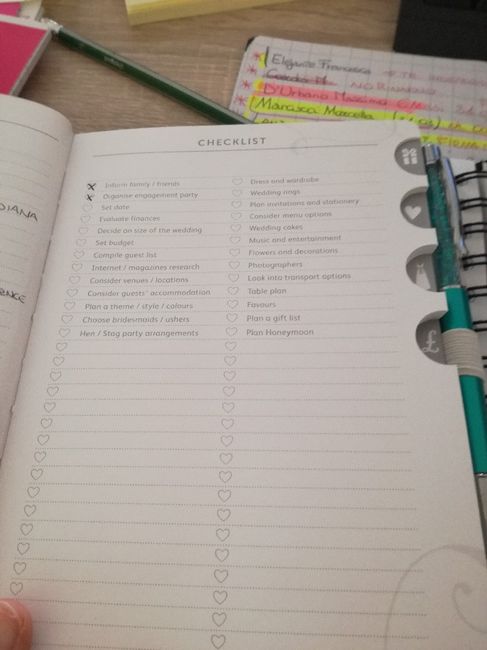 CHECKLIST
Inform family / friends
Organise engagement party
Set date
Evaluate finances
Decide on size of the wedding
Set budget
Compile guest list
Internet / magazines research
Consider venues / locations
Consider guests' accommodation
Plan a theme / style / colours
Choose bridesmaids / ushers
Hen / Stag party arrangements
Dress and wardrobe
Wedding rings
Plan invitations and stationery
Consider menu options
Wedding cakes
Music and entertainment
Flowers and decorations
Photographers
Look into transport options
Table plan
Favours
Plan a gift list
Plan Honeymoon
£
DIANA
Elegante Francesca
D'Urbano Massimo
Marasca Marcella
FIRMA